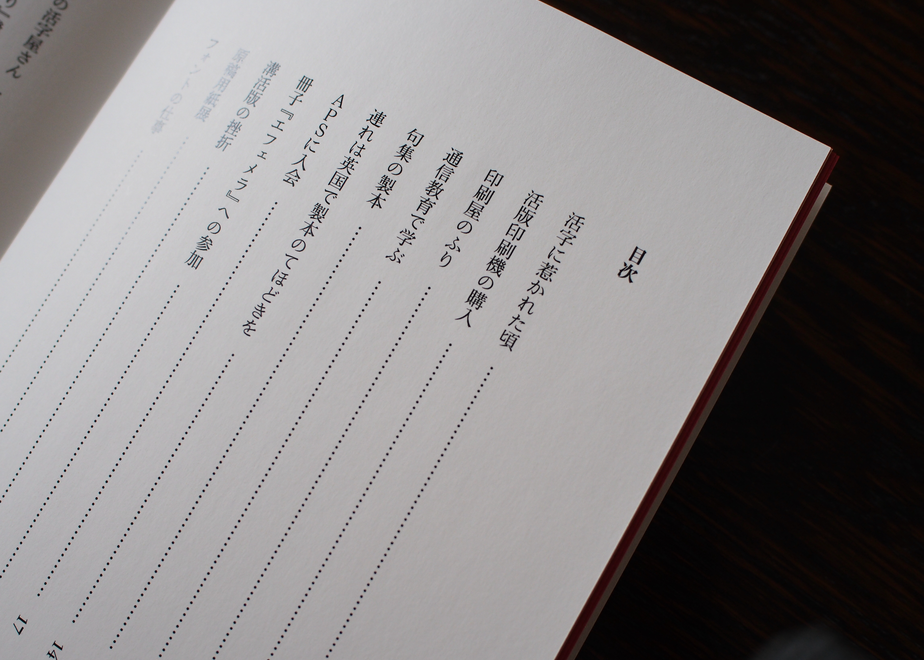 目次
活字に惹かれた頃
活版印刷機の購入
印刷屋のふり
通信教育で学ぶ
句集の製本
連れは英国で製本のてほどきを
APSに入会
冊子『エフェメラ』への参加 14
溝活版の挫折 17
原稿用紙展
フォントの仕事
の活字屋さん